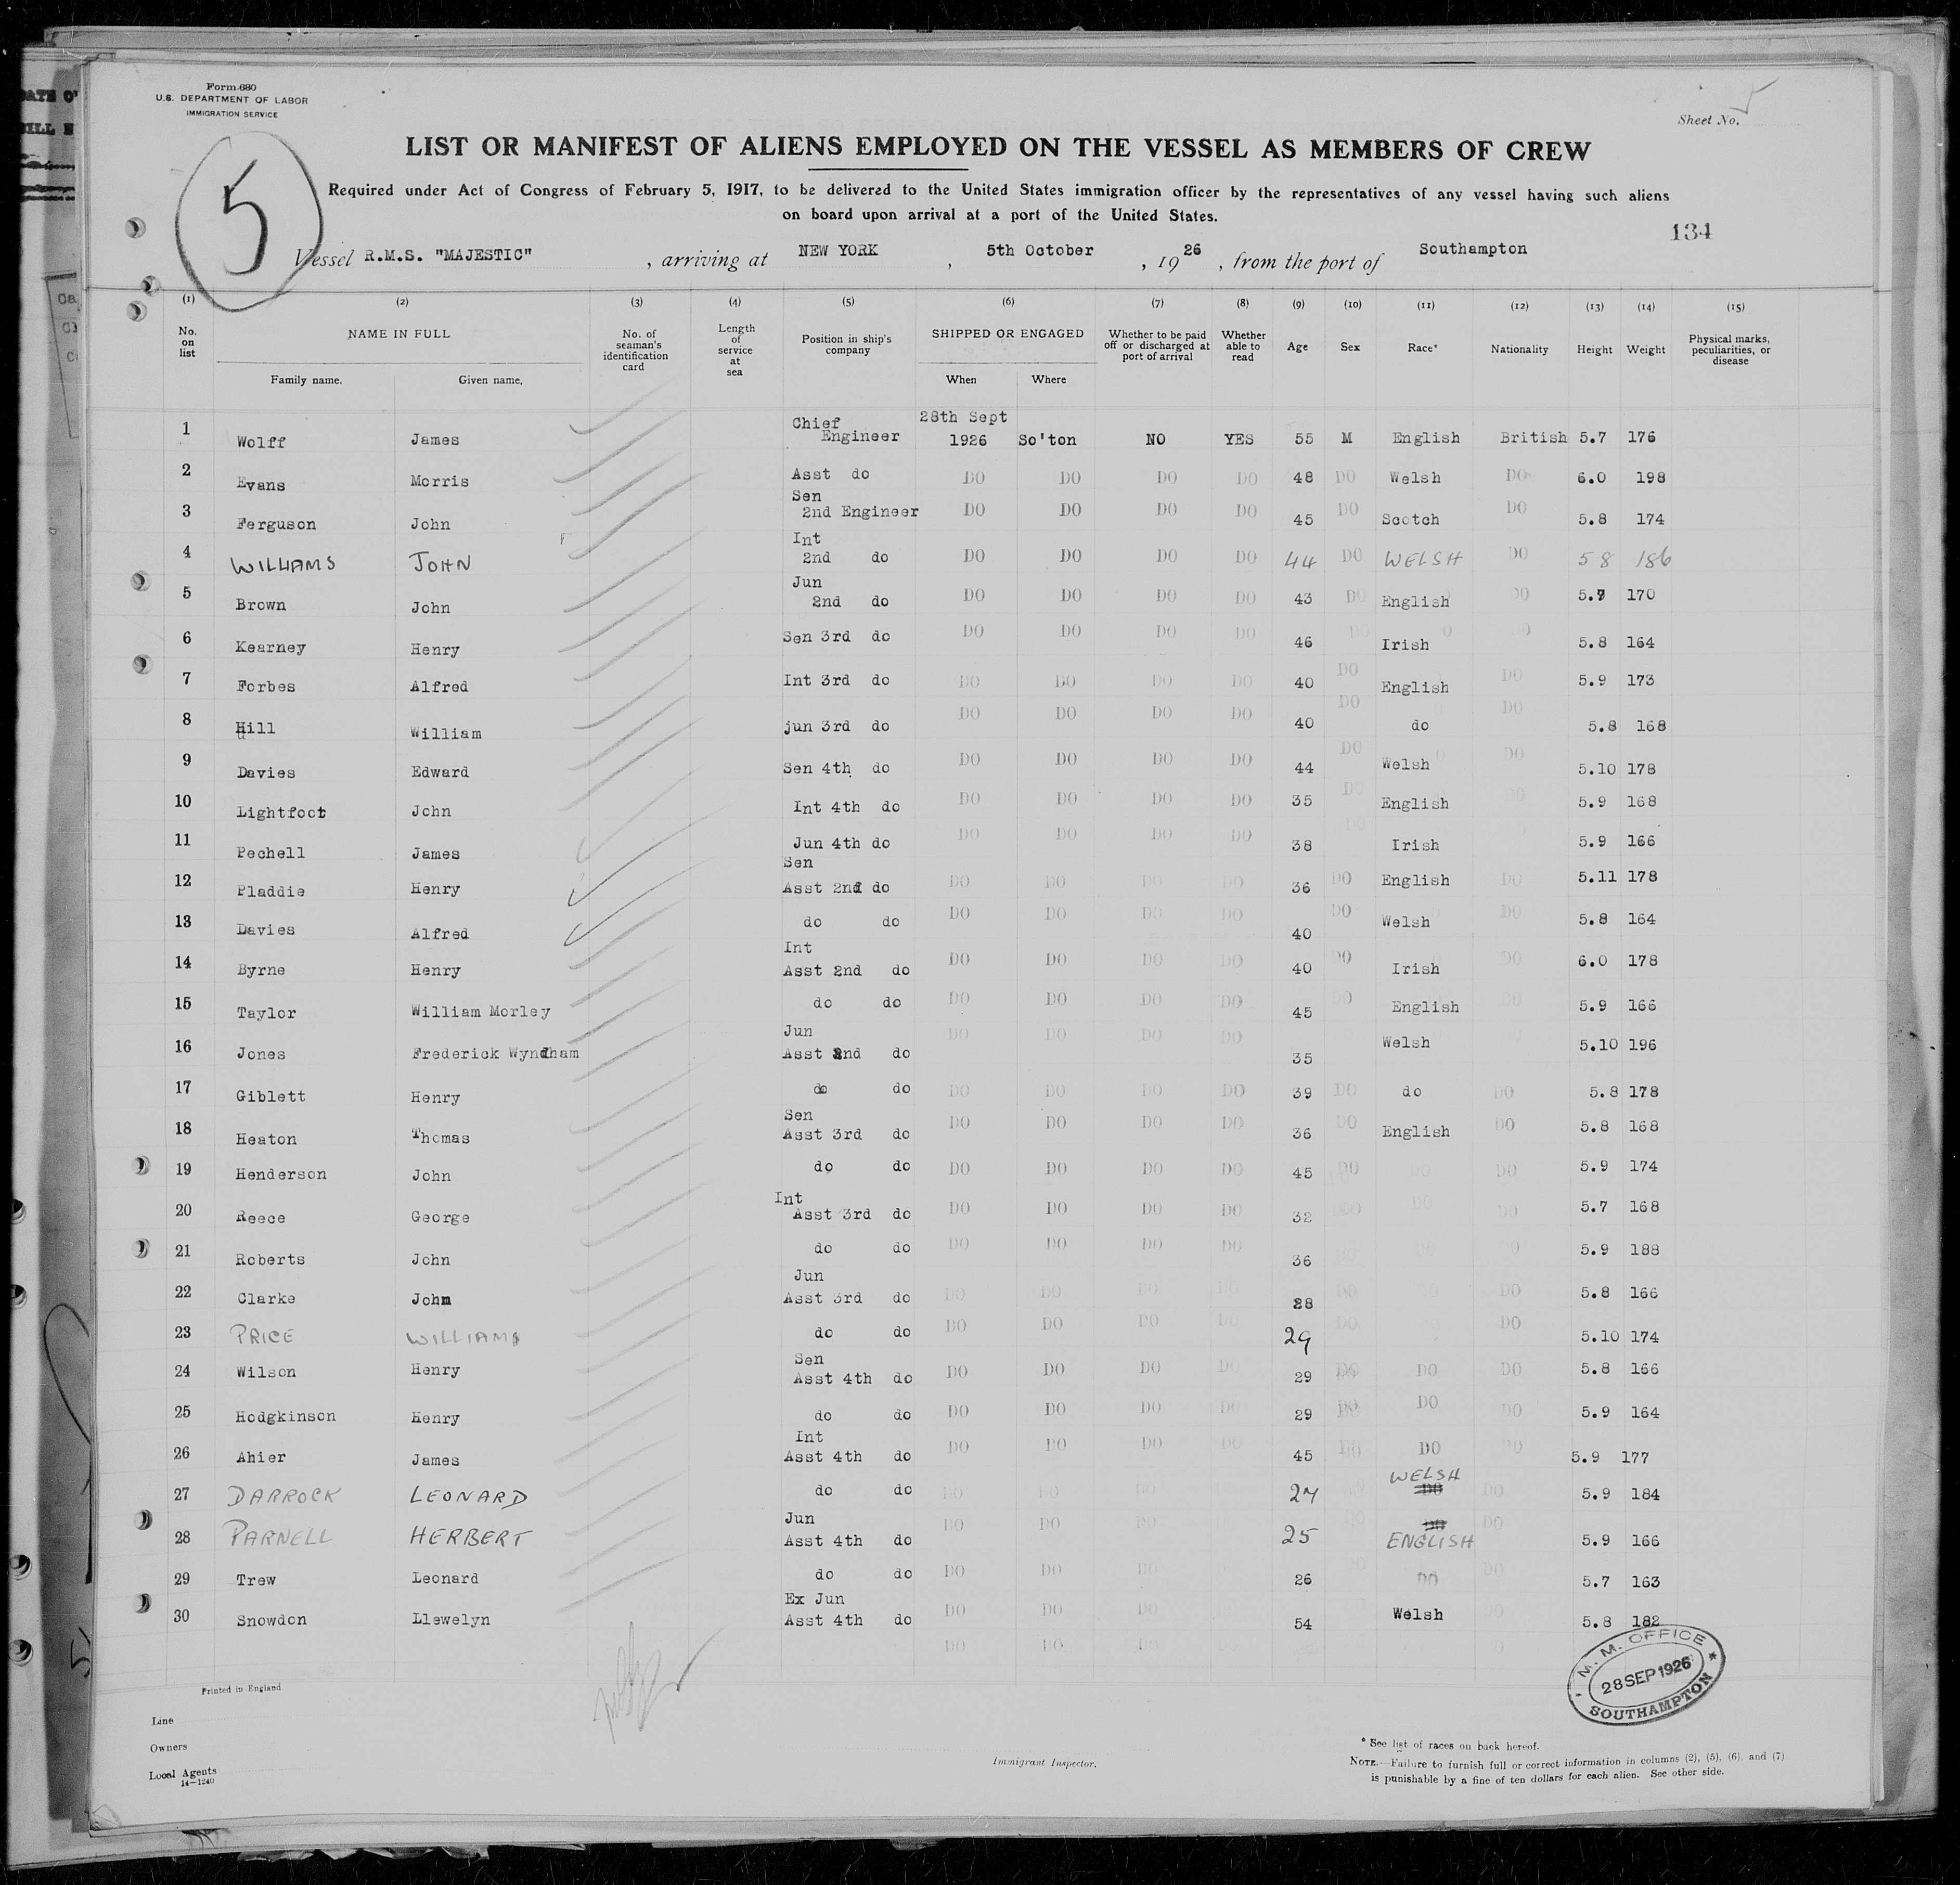 Form 680
U.S. DEPARTMENT OF LABOR
IMMIGRATION SERVICE
Sheet No.
5
LIST OR MANIFEST OF ALIENS EMPLOYED ON THE VESSEL AS MEMBERS OF CREW
Required under Act of Congress of February 5, 1917, to be delivered to the United States immigration officer by the representatives of any vessel having such aliens
on board upon arrival at a port of the United States.
134
Vessel R.M.S. "MAJESTIC" , arriving at NEW YORK , 5th October , 19 26 , from the port of Southampton
(1) (2) (3) (4) (5) (6) (7) (8) (9) (10) (11) (12) (13) (14) (15)
No. on list NAME IN FULL No. of seaman's identification card Length of service at sea Position in ship's company SHIPPED OR ENGAGED Whether to be paid off or discharged at port of arrival Whether able to read Age Sex Race* Nationality Height Weight Physical marks, peculiarities, or disease
Family name. Given name. When Where
1 Wolff James Chief Engineer 28th Sept 1926 So'ton NO YES 55 M English British 5.7 176
2 Evans Morris Asst do DO DO DO DO 48 DO Welsh DO 6.0 198
3 Ferguson John Sen 2nd Engineer DO DO DO DO 45 DO Scotch DO 5.8 174
4 WILLIAMS JOHN Int 2nd do DO DO DO DO 44 DO WELSH DO 5 8 186
5 Brown John Jun 2nd do DO DO DO DO 43 DO English DO 5.7 170
6 Kearney Henry Sen 3rd do DO DO DO DO 46 DO Irish DO 5.8 164
7 Forbes Alfred Int 3rd do DO DO DO DO 40 DO English DO 5.9 173
8 Hill William jun 3rd do DO DO DO DO 40 DO do DO 5.8 168
9 Davies Edward Sen 4th do DO DO DO DO 44 DO Welsh DO 5.10 178
10 Lightfoot John Int 4th do DO DO DO DO 35 DO English DO 5.9 168
11 Pechell James Jun 4th do DO DO DO DO 38 DO Irish 5.9 166
12 Pladdie Henry Sen Asst 2nd do DO DO DO DO 36 DO English DO 5.11 178
13 Davies Alfred do do DO DO DO DO 40 DO Welsh DO 5.8 164
14 Byrne Henry Int Asst 2nd do DO DO DO DO 40 DO Irish DO 6.0 178
15 Taylor William Morley do do DO DO DO DO 45 DO English DO 5.9 166
16 Jones Frederick Wyndham Jun Asst 2nd do DO DO DO DO 35 Welsh 5.10 196
17 Giblett Henry do do DO DO DO DO 39 DO do DO 5.8 178
18 Heaton Thomas Sen Asst 3rd do DO DO DO DO 36 DO English DO 5.8 168
19 Henderson John do do DO DO DO DO 45 DO DO 5.9 174
20 Reece George Int Asst 3rd do DO DO DO DO 32 DO DO DO 5.7 168
21 Roberts John do do DO DO DO DO 36 DO DO DO 5.9 188
22 Clarke John Jun Asst 3rd do DO DO DO DO 28 DO DO DO 5.8 166
23 PRICE WILLIAM do do DO DO DO DO 29 DO DO 5.10 174
24 Wilson Henry Sen Asst 4th do DO DO DO DO 29 DO DO DO 5.8 166
25 Hodgkinson Henry do do DO DO DO DO 29 DO DO DO 5.9 164
26 Ahier James Int Asst 4th do DO DO DO DO 45 DO DO DO 5.9 177
27 DARROCK LEONARD do do DO DO DO 27 WELSH DO 5.9 184
28 PARNELL HERBERT Jun Asst 4th do DO DO DO 25 DO ENGLISH DO 5.9 166
29 Trew Leonard do do DO DO DO 26 DO DO DO 5.7 163
30 Snowdon Llewelyn Ex Jun Asst 4th do DO DO DO 54 Welsh DO 5.8 182
DO DO DO
M. M. OFFICE
28 SEP 1926
SOUTHAMPTON
Printed in England
Line
Owners
Local Agents
14—1240
Immigrant Inspector.
* See list of races on back hereof.
NOTE.—Failure to furnish full or correct information in columns (2), (5), (6), and (7)
is punishable by a fine of ten dollars for each alien. See other side.